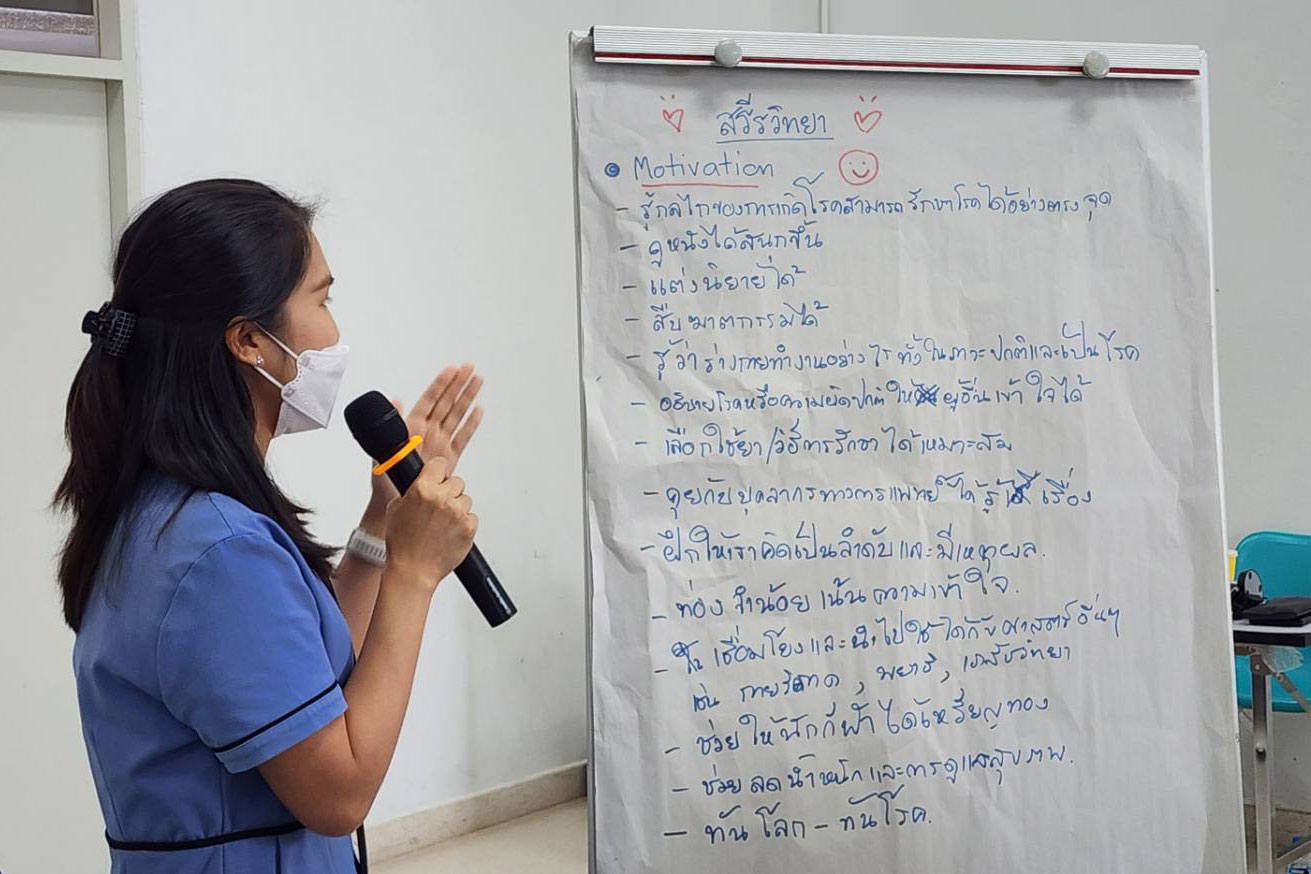 สรีรวิทยา
Motivation
- รู้กลไกของการเกิดโรคสามารถรักษาโรคได้อย่างตรงจุด
- ดูหนังได้สนุกขึ้น
- แต่งนิยายได้
- สืบฆาตกรรมได้
- รู้ว่าร่างกายทำงานอย่างไร ทั้งในภาวะปกติและเป็นโรค
- อธิบายโรคหรือความผิดปกติ ให้ ผู้อื่นเข้าใจได้
- เลือกใช้ยา/วิธีการรักษาได้เหมาะสม
- คุยกับบุคลากรทางการแพทย์ได้รู้เรื่อง
- ฝึกให้เราคิดเป็นลำดับและมีเหตุผล.
- ท่องจำน้อย เน้นความเข้าใจ.
- เชื่อมโยงและนำไปใช้ได้กับศาสตร์อื่นๆ
เช่น กายวิภาค, พยาธิ, เภสัชวิทยา
- ช่วยให้นักกีฬาได้เหรียญทอง
- ช่วยลดน้ำหนักและการดูแลสุขภาพ.
- ทันโลก - ทันโรค.